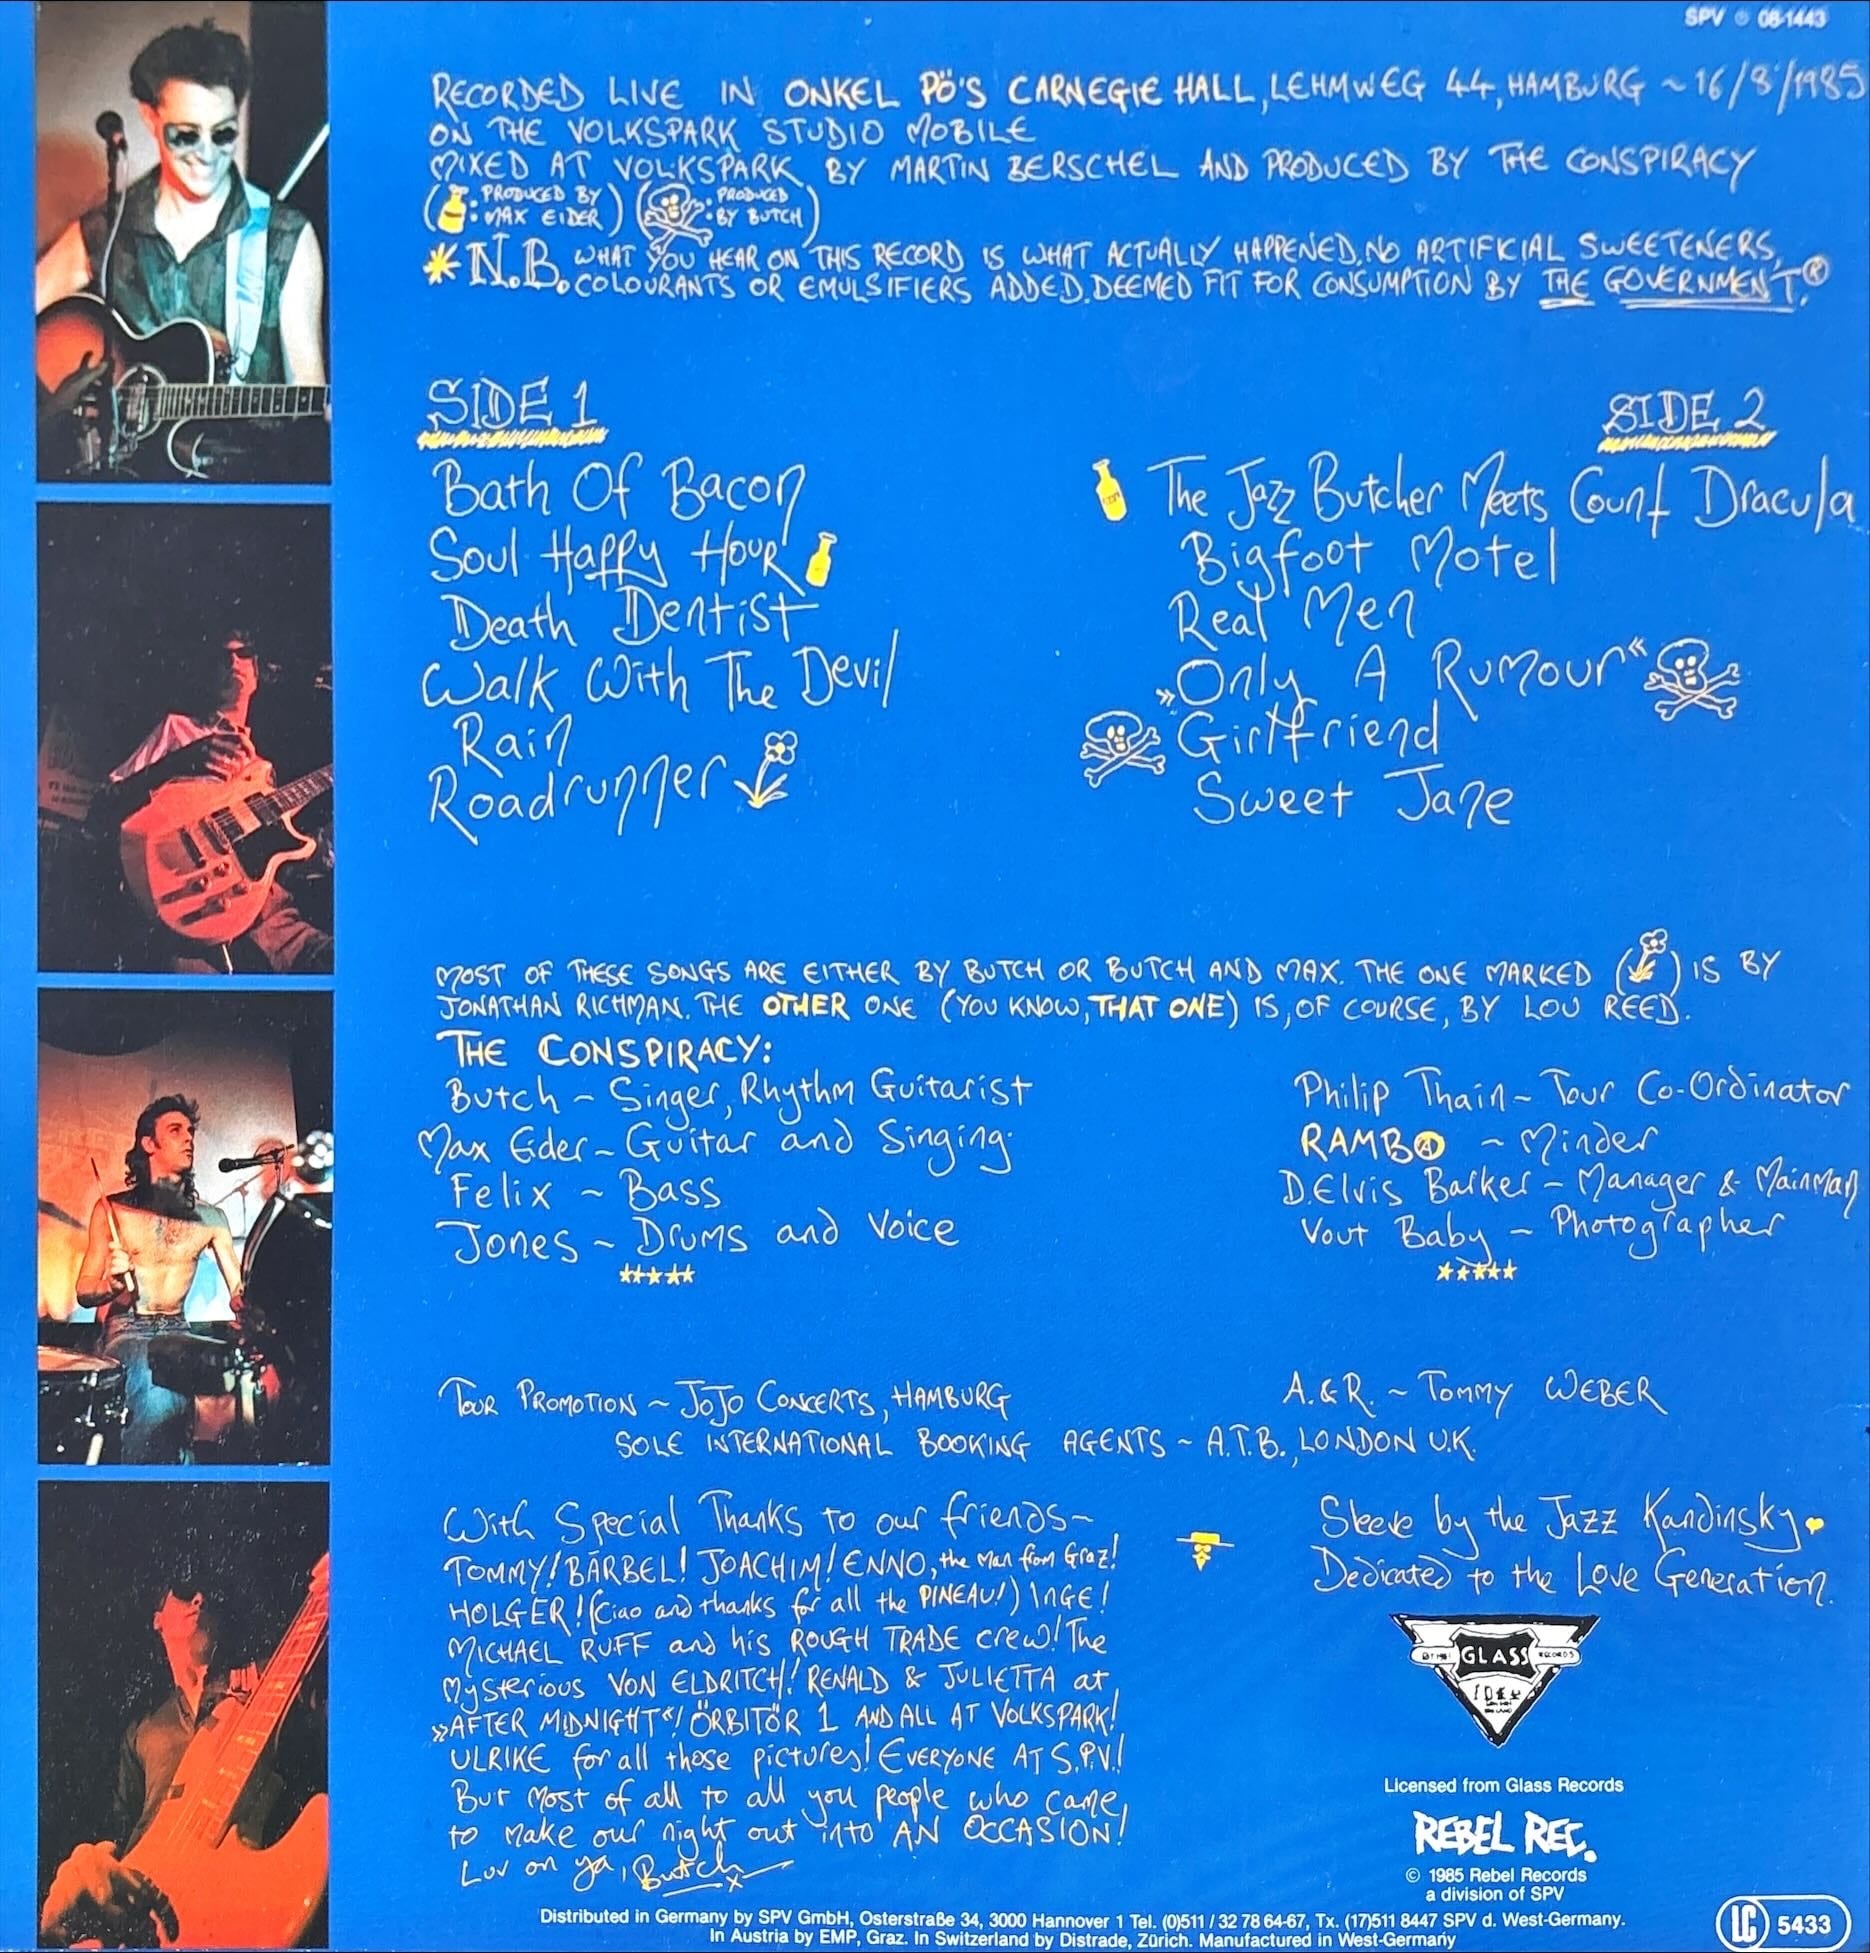 SPV ℗ 08-1443
RECORDED LIVE IN ONKEL PÖ'S CARNEGIE HALL, LEHMWEG 44, HAMBURG ~ 16/8/1985
ON THE VOLKSPARK STUDIO MOBILE
MIXED AT VOLKSPARK BY MARTIN BERSCHEL AND PRODUCED BY THE CONSPIRACY
( : PRODUCED BY MAX EIDER) ( : PRODUCED BY BUTCH)
* N.B. WHAT YOU HEAR ON THIS RECORD IS WHAT ACTUALLY HAPPENED. NO ARTIFICIAL SWEETENERS,
COLOURANTS OR EMULSIFIERS ADDED. DEEMED FIT FOR CONSUMPTION BY THE GOVERNMENT.®
SIDE 1
Bath Of Bacon
Soul Happy Hour
Death Dentist
Walk With The Devil
Rain
Roadrunner
SIDE 2
The Jazz Butcher Meets Count Dracula
Bigfoot Motel
Real Men
»Only A Rumour«
Girlfriend
Sweet Jane
MOST OF THESE SONGS ARE EITHER BY BUTCH OR BUTCH AND MAX. THE ONE MARKED ( ) IS BY
JONATHAN RICHMAN. THE OTHER ONE (YOU KNOW, THAT ONE) IS, OF COURSE, BY LOU REED.
THE CONSPIRACY:
Butch ~ Singer, Rhythm Guitarist
Max Eider ~ Guitar and Singing
Felix ~ Bass
Jones ~ Drums and Voice
*****
Philip Thain ~ Tour Co-Ordinator
RAMBO ~ Minder
D. Elvis Barker ~ Manager & Mainman
Vout Baby ~ Photographer
*****
TOUR PROMOTION ~ JOJO CONCERTS, HAMBURG
A.&R. ~ TOMMY WEBER
SOLE INTERNATIONAL BOOKING AGENTS ~ A.T.B., LONDON U.K.
With Special Thanks to our friends ~
TOMMY! BÄRBEL! JOACHIM! ENNO, the Man from Graz!
HOLGER! (Ciao and thanks for all the PINEAU!) INGE!
MICHAEL RUFF and his ROUGH TRADE crew! The
Mysterious VON ELDRITCH! RENALD & JULIETTA at
»AFTER MIDNIGHT«! ÖRBITÖR 1 AND ALL AT VOLKSPARK!
ULRIKE for all those pictures! EVERYONE AT S.P.V.!
But most of all to all you people who came,
to make our night out into AN OCCASION!
Luv on ya, Butch x
Sleeve by the Jazz Kandinsky.
Dedicated to the Love Generation.
GLASS
RECORDS
Licensed from Glass Records
REBEL REC.
© 1985 Rebel Records
a division of SPV
Distributed in Germany by SPV GmbH, Osterstraße 34, 3000 Hannover 1 Tel. (0)511 / 32 78 64-67, Tx. (17)511 8447 SPV d. West-Germany.
In Austria by EMP, Graz. In Switzerland by Distrade, Zürich. Manufactured in West-Germany
LC 5433